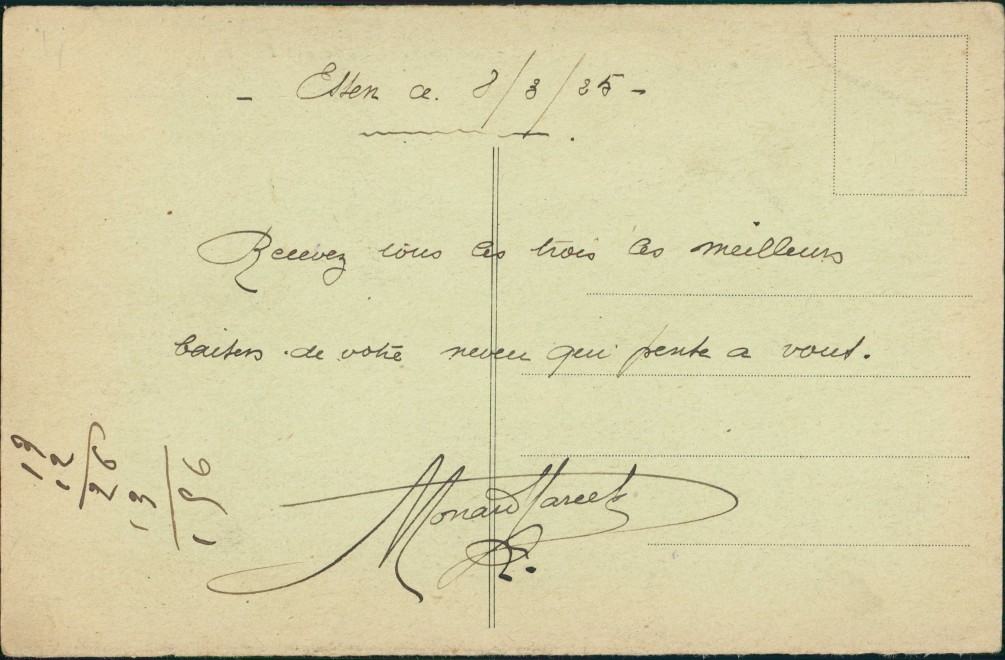 - Essen le. 8/3/25 -
Recevez tous les trois les meilleurs
baisers de votre neveu qui pense a vous.
Monard Marcel
19
12
26
13
156